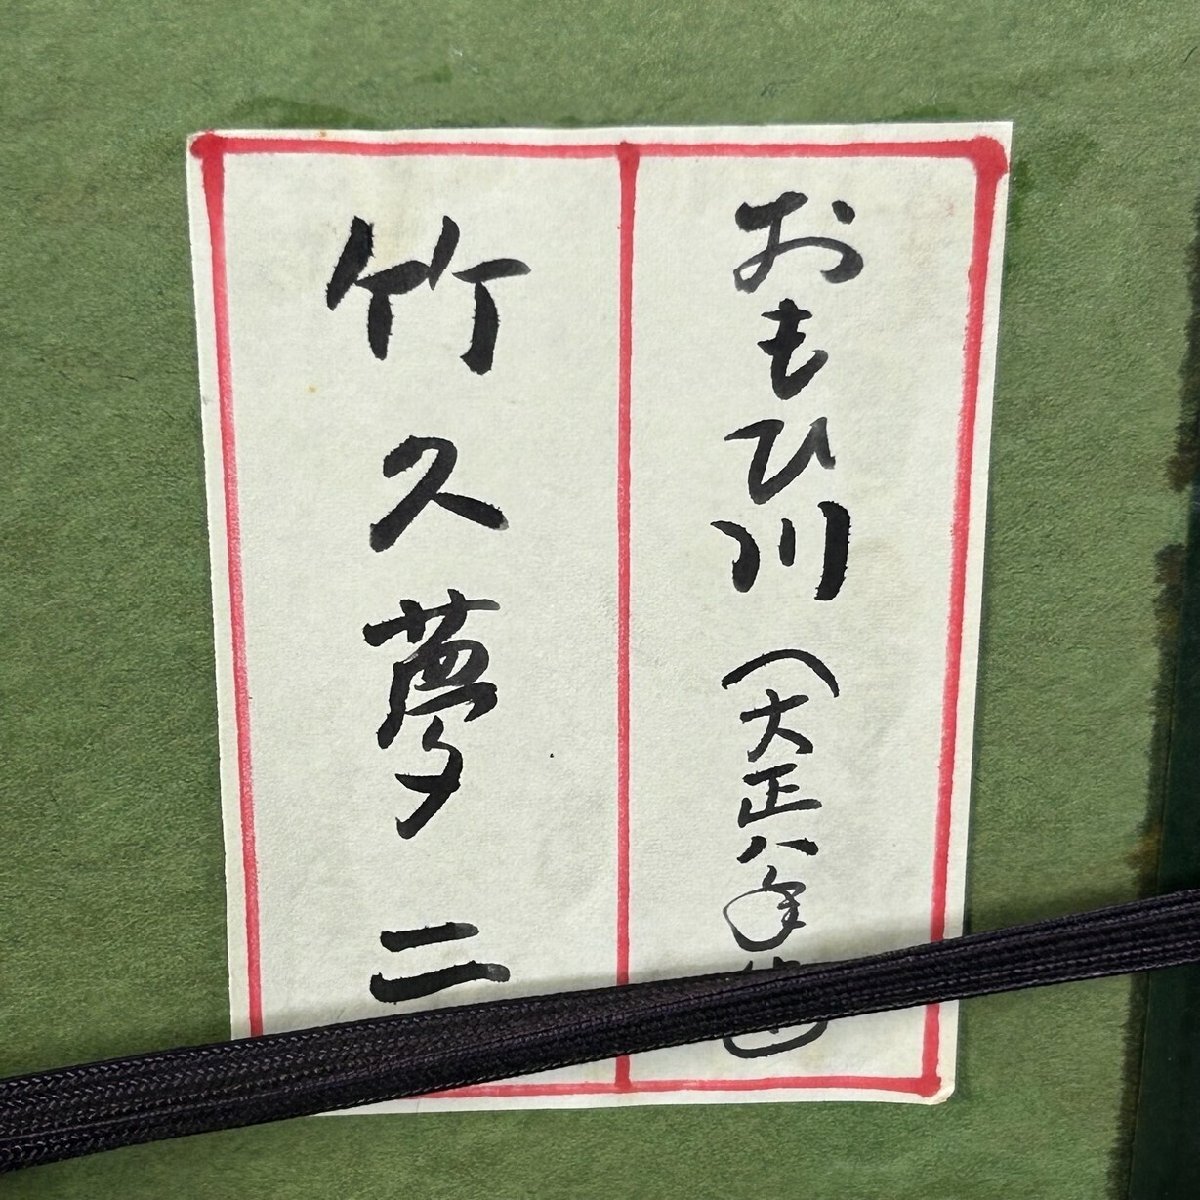 おもひ川（大正八年作）
竹久夢二